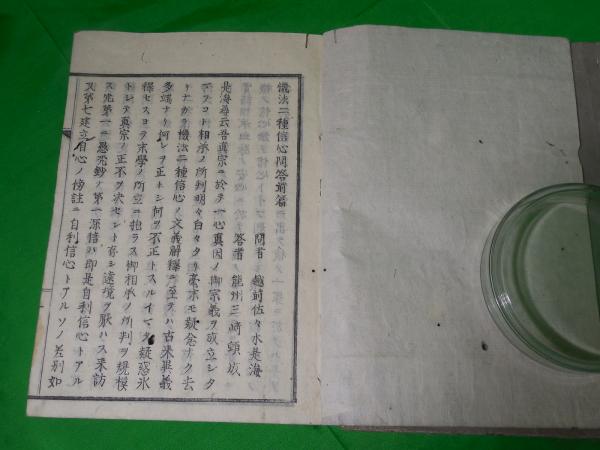 機法二種信心問答前篇
問者 越前佐々木是海
答者 能州三﨑頓成
是海尋云吾真宗ニ於テ一心真因ノ御宗義ヲ成立シタ
マフコト相承ノ所判明々白々タリ毫末モ疑念ナク去
ナカラ機法二種信心ノ文義解釋ニ至テハ古来異義
多端ナリ何レヲ正トシ何ヲ不正トスルイマタ疑惑氷
釋セスヨツテ末學ノ所立ニ拘ラス御相承ノ所判ヲ規模
トシテ真宗ノ正不ヲ决セント有シ遠境ヲ厭ハス来訪
ス先第一ニ愚禿鈔ノ第一深信ハ即是自利信心トアル
又第七建立自心ノ傍註ニ自利信心トアルソノ差別如